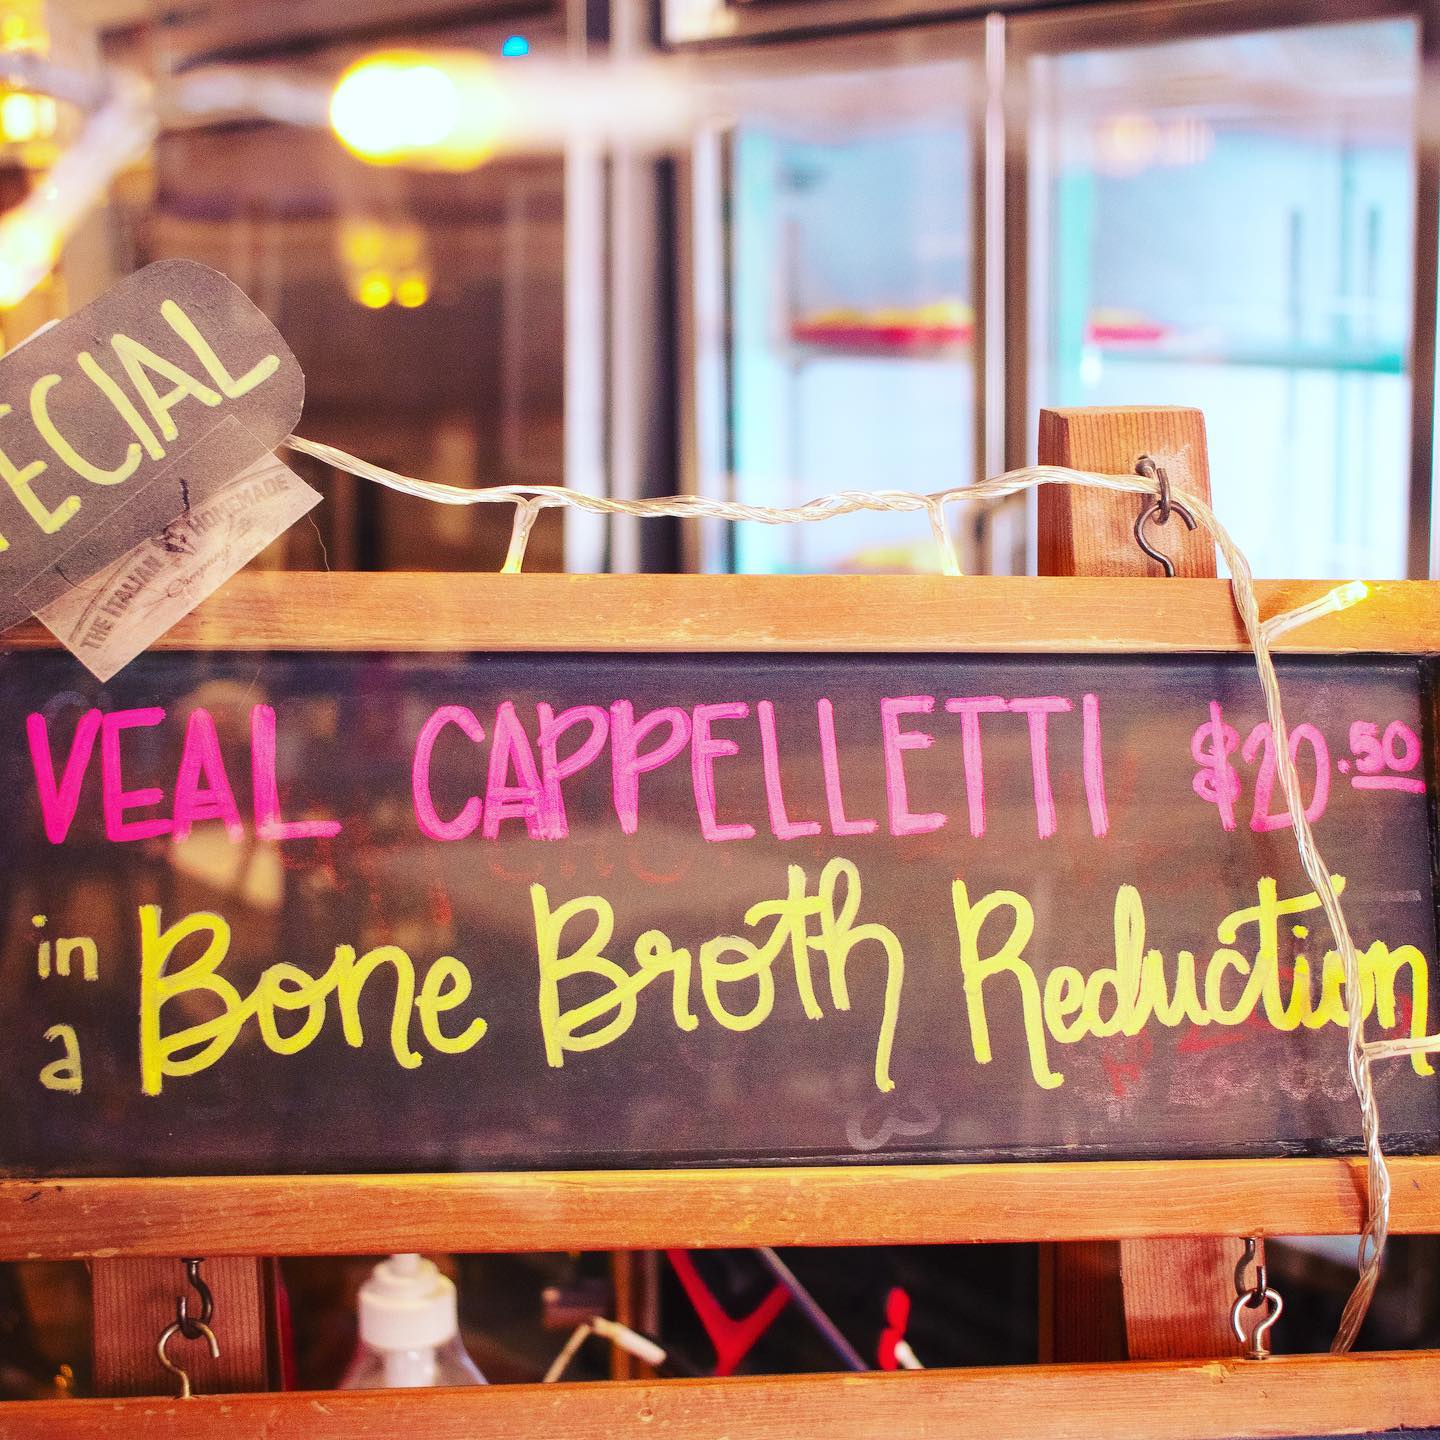 ECIAL
THE ITALIAN HOMEMADE
Company
VEAL CAPPELLETTI $20.50
in a Bone Broth Reduction